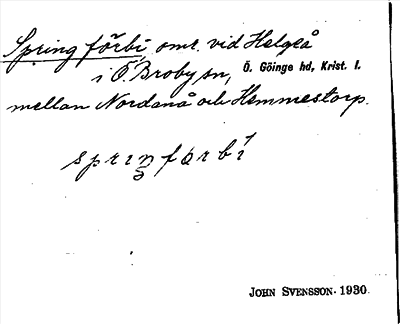 Spring förbi omr. vid Helgeå
i Ö. Broby sn, Ö. Göinge hd, Krist. l.
mellan Nordanå och Hemmestorp.
sprıŋ förbí
JOHN SVENSSON. 1930.